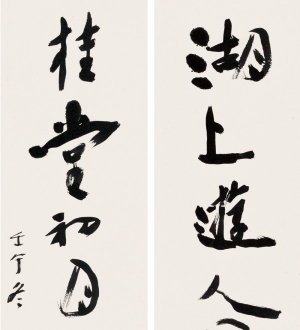 湖上遊人
桂堂初月
壬午冬